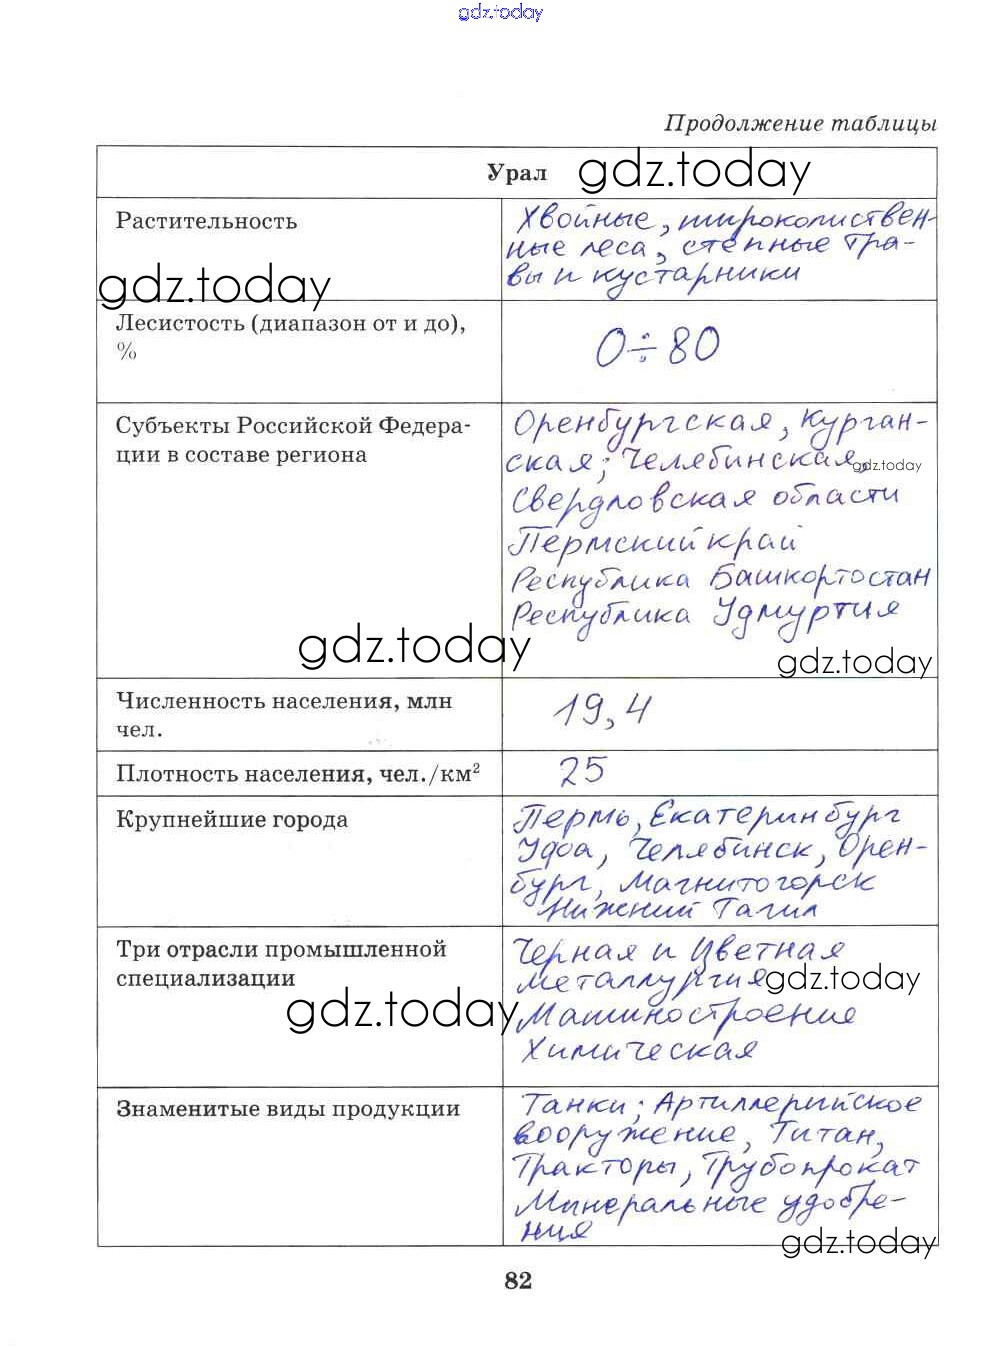 gdz.today
Продолжение таблицы
Урал
gdz.today
Растительность
Хвойные, широколиствен-
ные леса, степные тра-
вы и кустарники
gdz.today
Лесистость (диапазон от и до),
%
0÷80
Субъекты Российской Федера-
ции в составе региона
Оренбургская, Курган-
ская; Челябинская,
gdz.today
Свердловская области
Пермский край
Республика Башкортостан
Республика Удмуртия
gdz.today
gdz.today
Численность населения, млн
чел.
19,4
Плотность населения, чел./км²
25
Крупнейшие города
Пермь, Екатеринбург
Уфа, Челябинск, Орен-
бург, Магнитогорск
Нижний Тагил
Три отрасли промышленной
специализации
Черная и Цветная
металлургия
gdz.today
gdz.today
Машиностроение
Химическая
Знаменитые виды продукции
Танки; Артиллерийское
вооружение, Титан,
Тракторы, Трубопрокат
Минеральные удобре-
ния
gdz.today
82